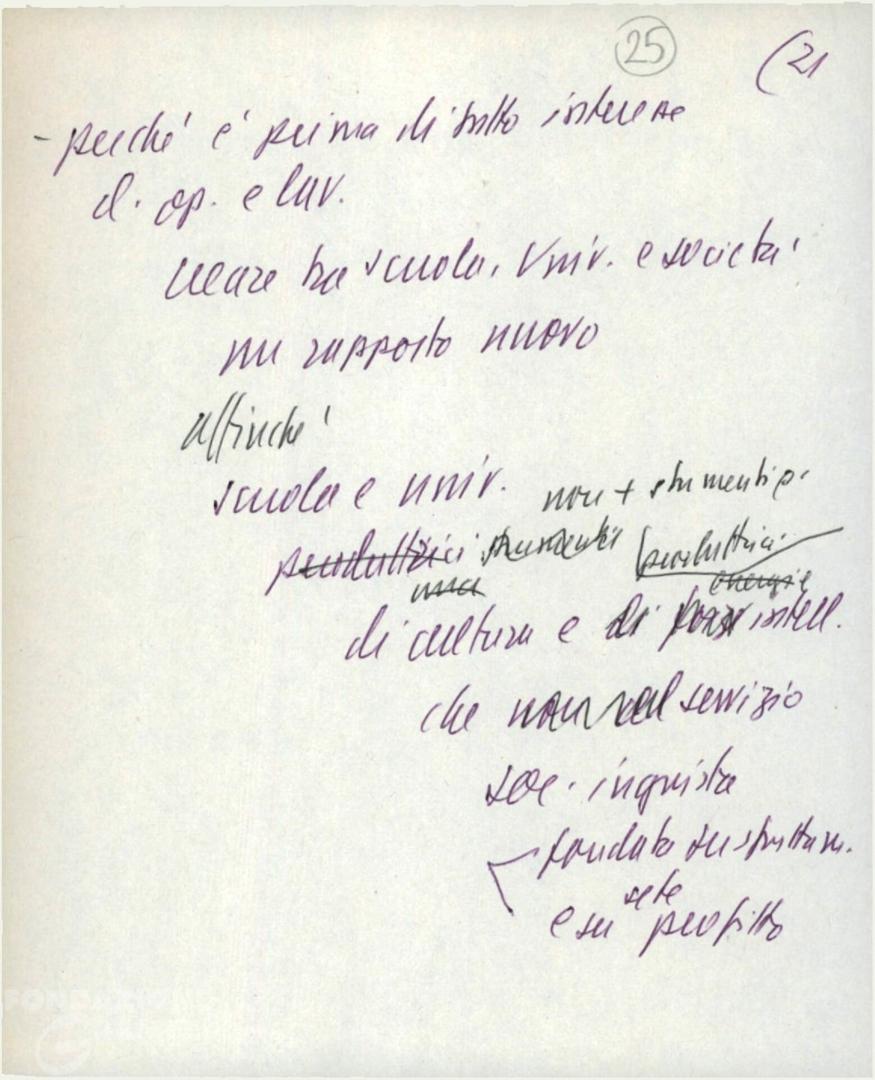 25
(21
- perché è prima di tutto interesse
d. op. e lav.
creare tra scuola, Univ. e società
un rapporto nuovo
affinché
scuola e univ.
non + strumenti p.
produttrici strumenti produttrici
energie
di cultura e di forze intell.
che non al servizio
soc. ingiusta
fondata su sfruttam.
sete
e su profitto
FONDAZIONE